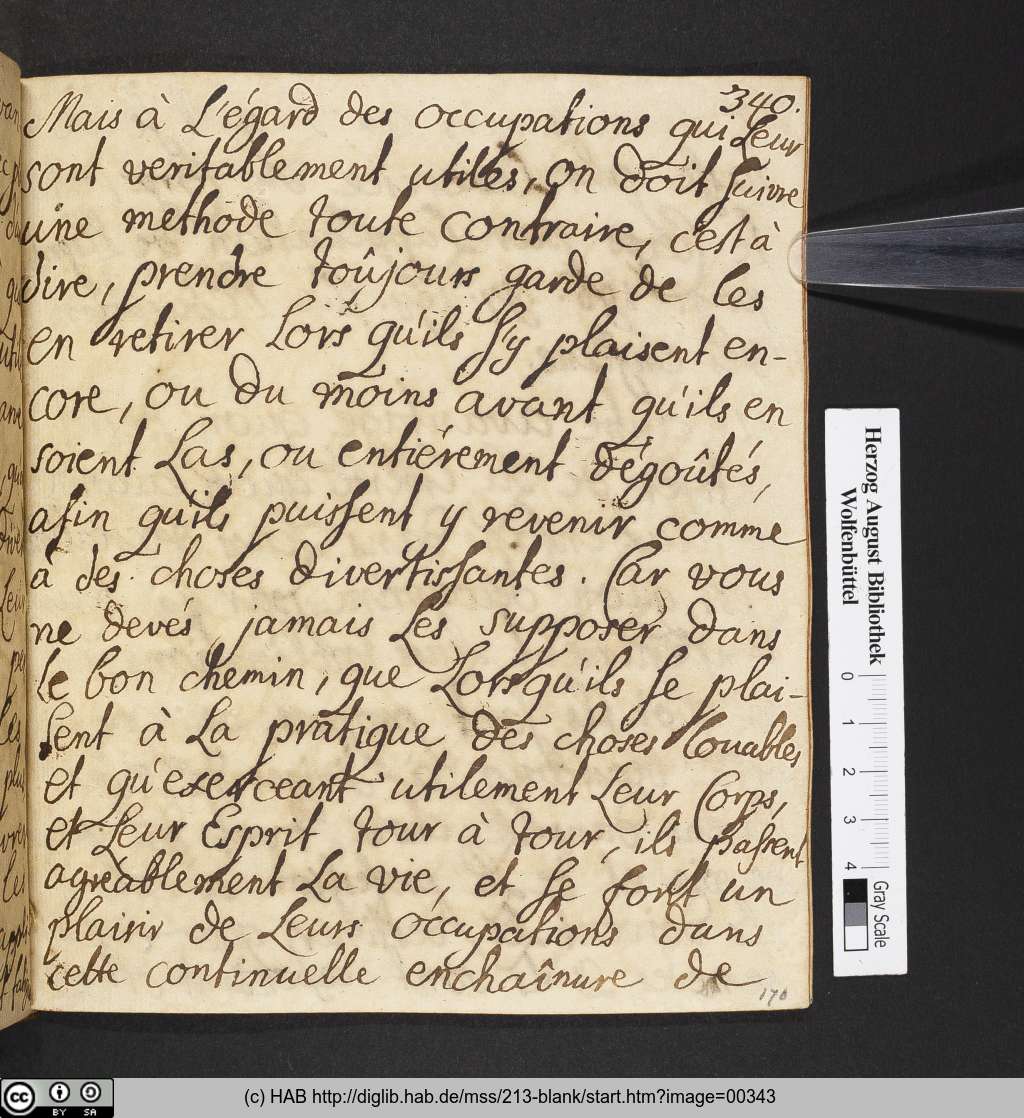 340.
Mais à L'égard des occupations qui Leur
sont veritablement utiles, on doit suivre
une methode toute contraire, c'est à
dire, prendre toûjours garde de les
en retirer Lors qu'ils s'y plaisent en-
core, ou du moins avant qu'ils en
soient Las, ou entiérement dégoûtés,
afin qu'ils puissent y revenir comme
à des choses divertissantes. Car vous
ne devés jamais Les supposer dans
le bon chemin, que Lorsqu'ils se plai-
sent à La pratique des choses Louables
et qu'exerceant utilement Leur Corps,
et Leur Esprit tour à tour, ils passent
agréablement La vie, et se font un
plaisir de Leurs occupations dans
cette continuelle enchaînure de
170
Herzog August Bibliothek
Wolfenbüttel
0 1 2 3 4
Gray Scale
cc BY SA
(c) HAB http://diglib.hab.de/mss/213-blank/start.htm?image=00343